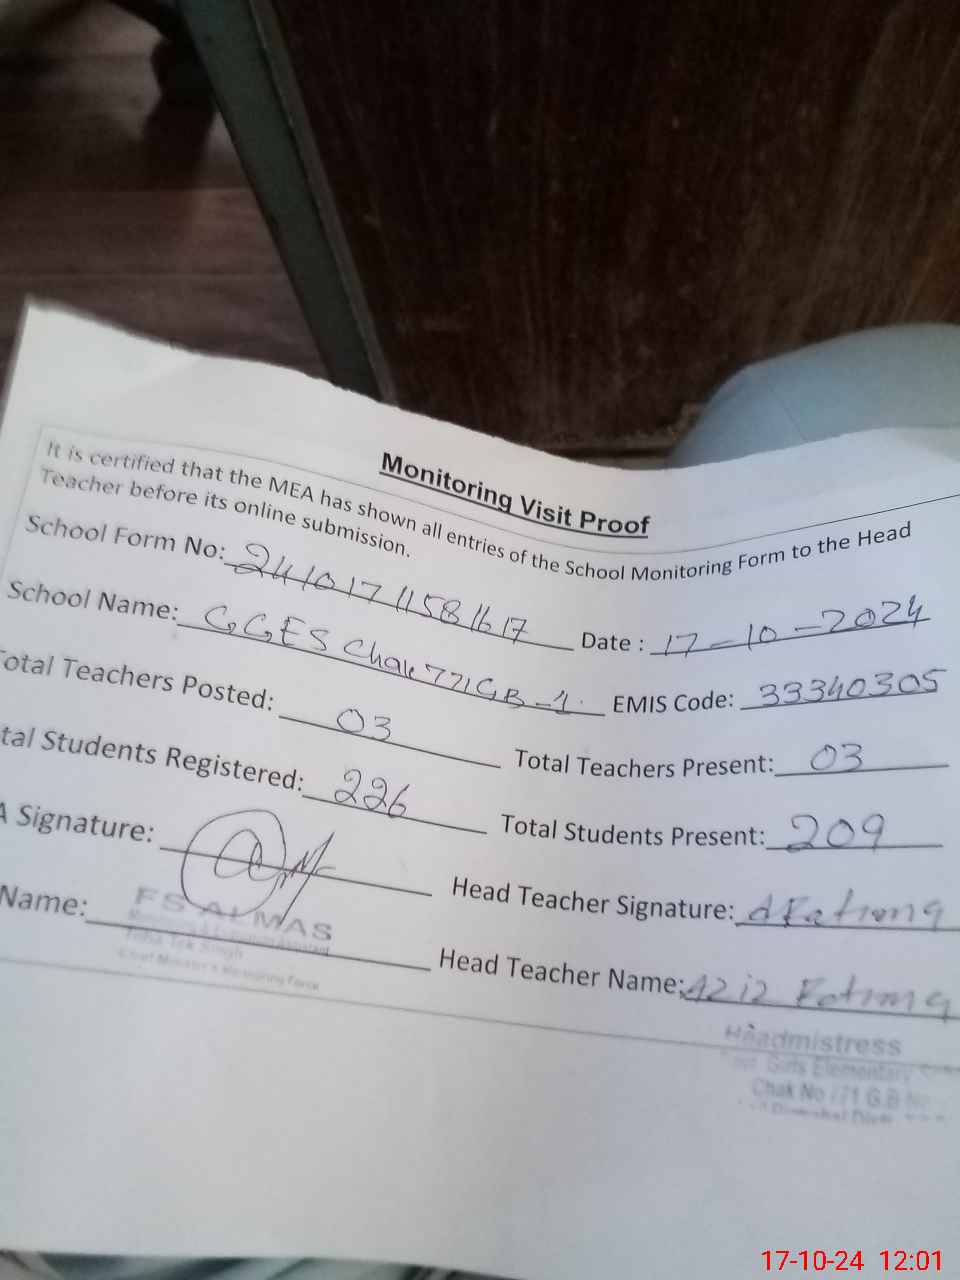 Monitoring Visit Proof
It is certified that the MEA has shown all entries of the School Monitoring Form to the Head
Teacher before its online submission.
School Form No: 241017115811617 Date : 17-10-2024
School Name: GGES Chak 771GB-1. EMIS Code: 33340305
otal Teachers Posted: 03 Total Teachers Present: 03
tal Students Registered: 226 Total Students Present: 209
A Signature: Head Teacher Signature: A Fatima
Name: FS ALMAS Head Teacher Name: Aziz Fatima
Toba Tek Singh
Chief Minister's Monitoring Force
Headmistress
Girls Elementary
Chak No 771 G.B
17-10-24 12:01